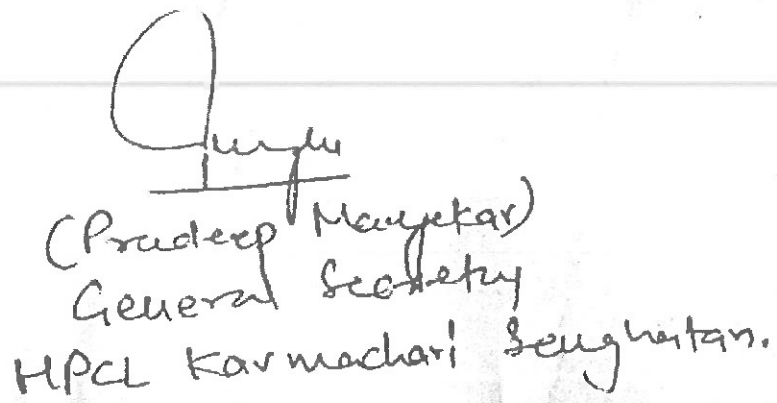 (Pradeep Mayekar)
General Secretary
HPCL Karmachari Sanghatan.